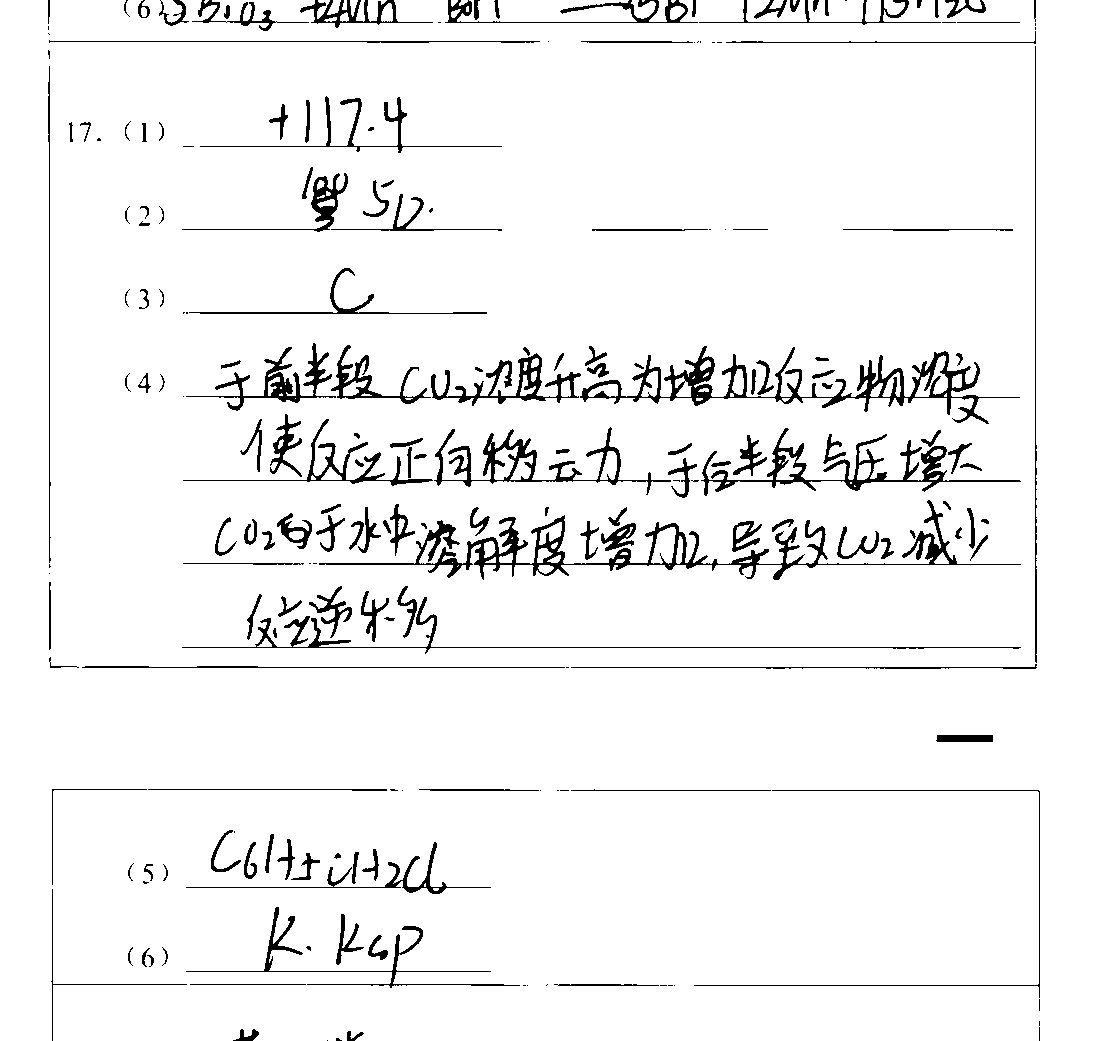 (6)
17. (1) +117.4
(2) 50.
(3) C
(4) 于前半段 CO₂浓度升高为增加反应物浓度
使反应正向移云力,于后半段气压增大
CO₂由于水中溶解度增加,导致CO₂减少
反应逆移
(5) C6H5CH2Cl
(6) K. Ksp